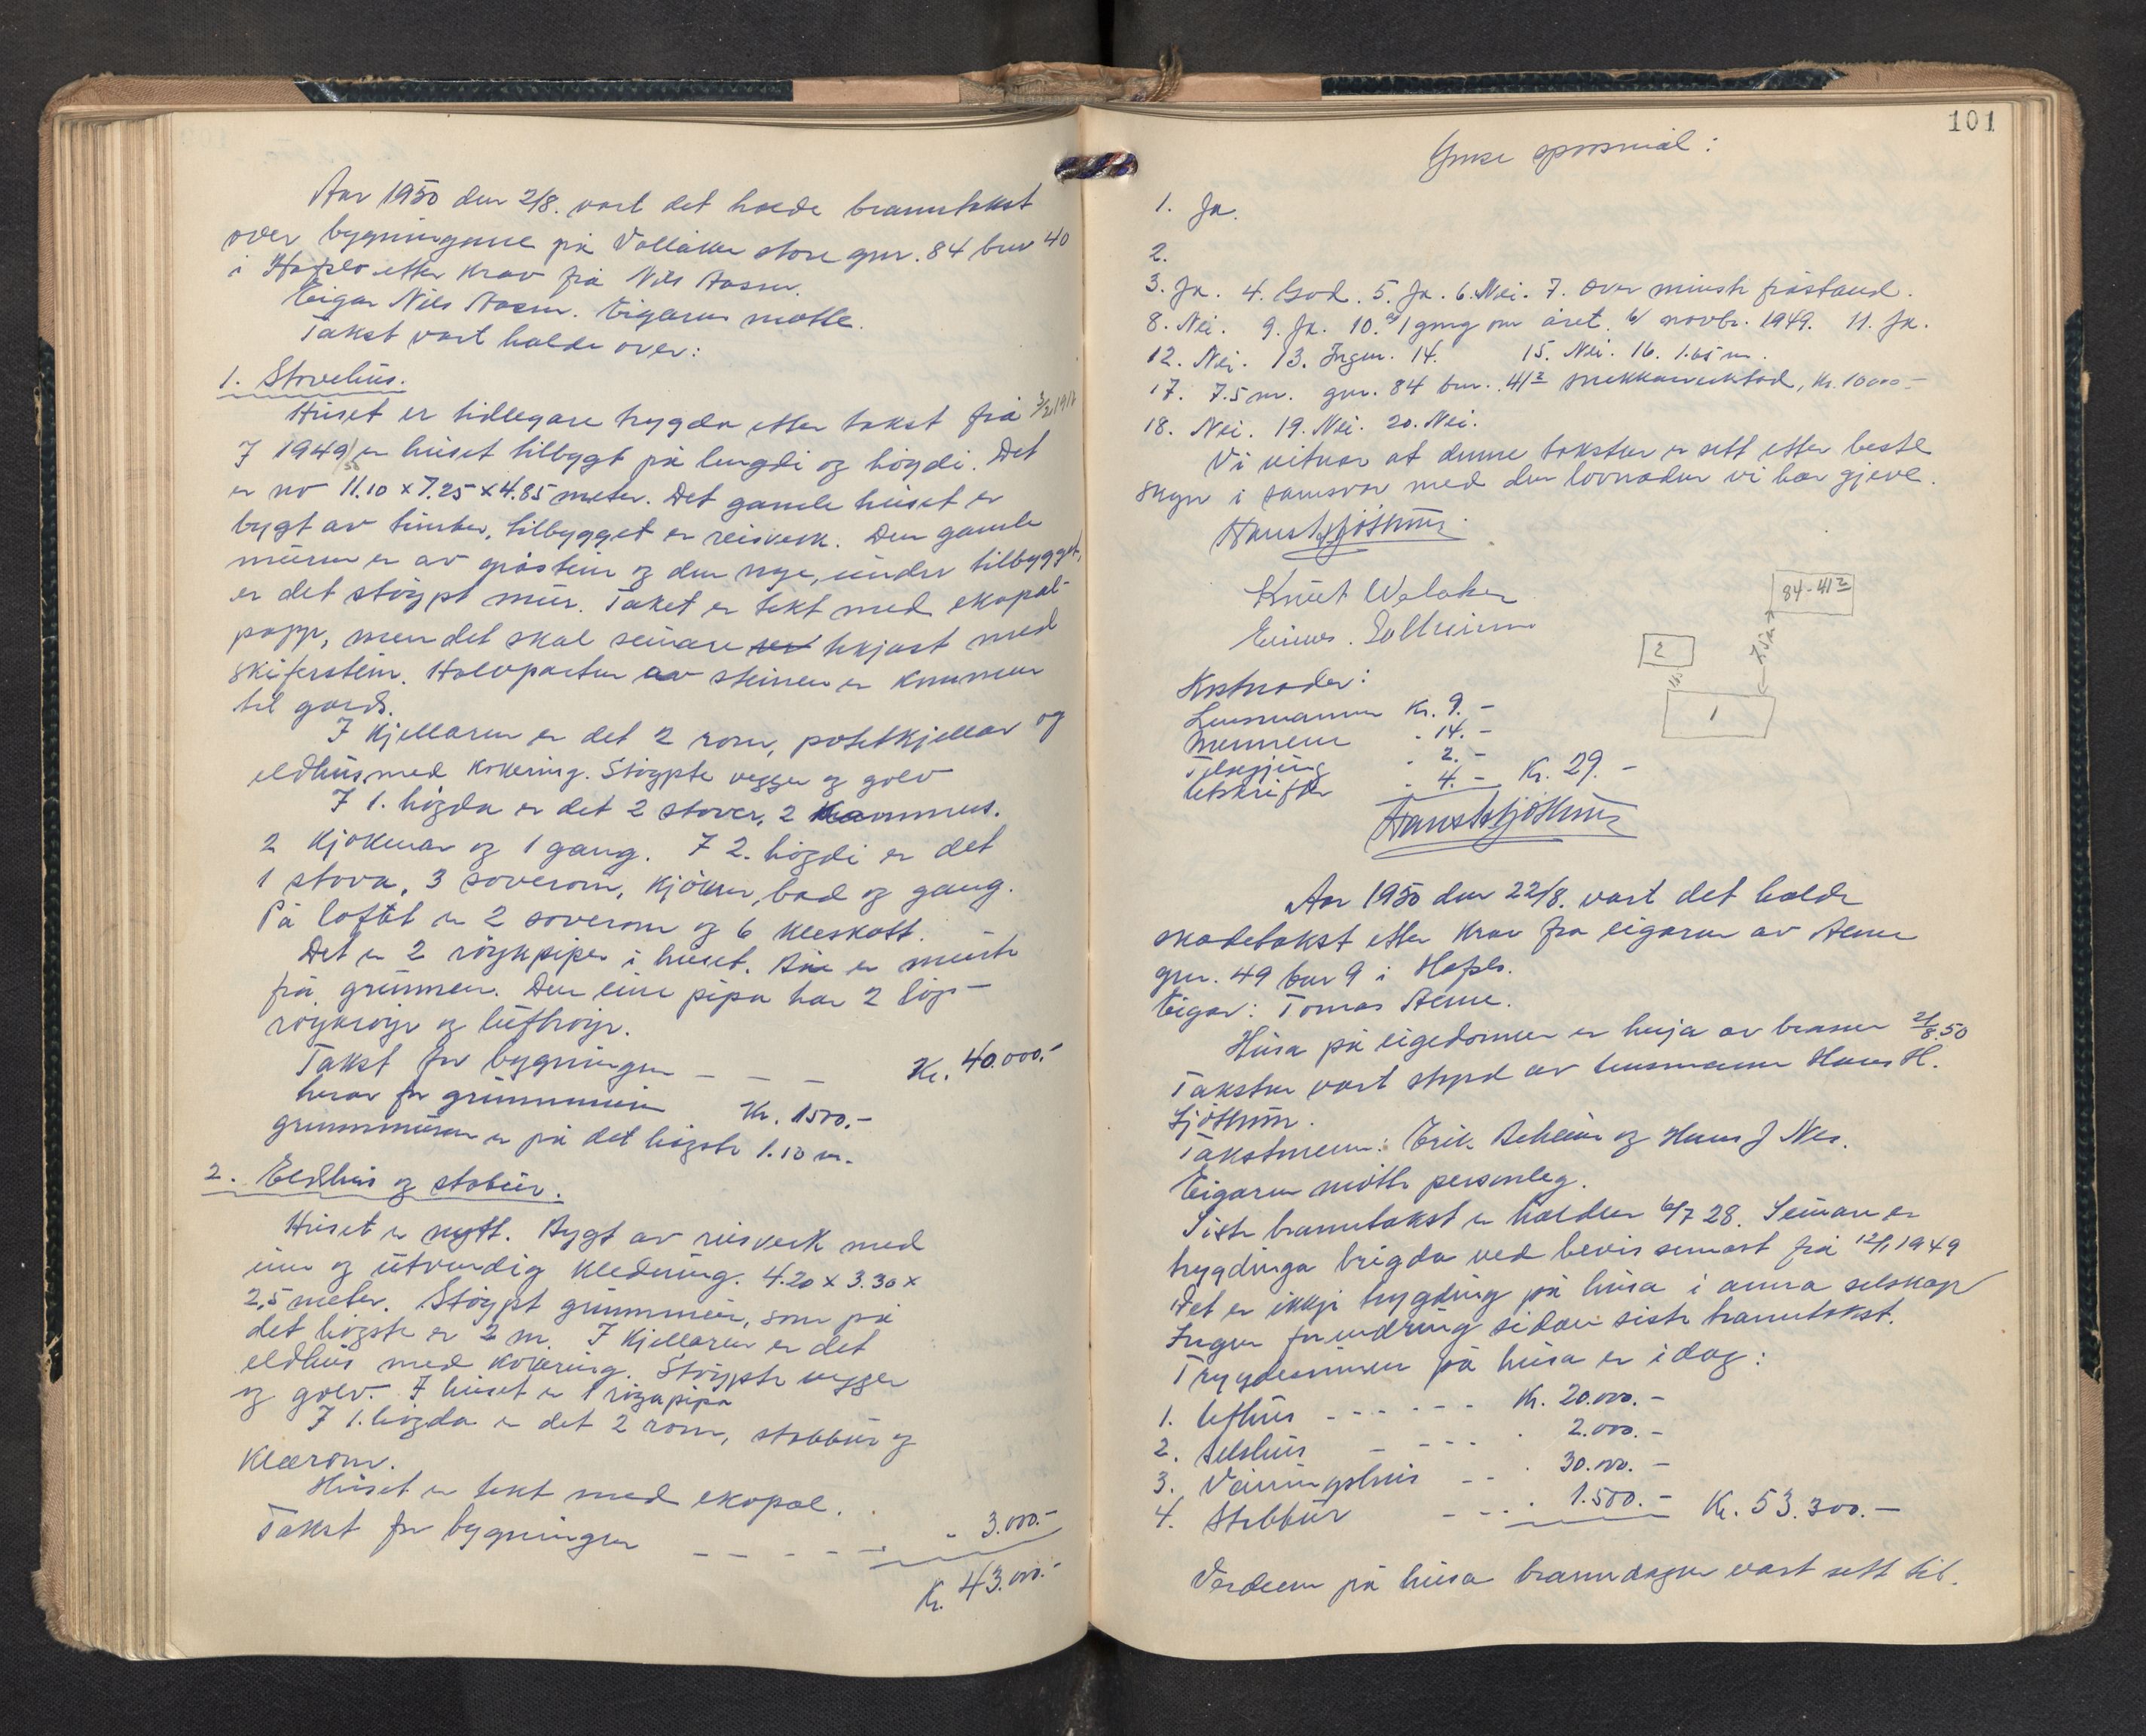 Aar 1950 den 2/8. vart det halde branntakst
over bygningane på Vollåker store gnr. 84 bnr 40
i Hafslo etter krav frå Nils
Eigar Nils Eigaren møtte.
Takst vart halde over:
1. Stovehus.
Huset er tidlegare trygda etter takst frå 3/2 1917
I 1949/50 er huset tilbygt på lengdi og høgdi. Det
er no 11.10 x 7.25 x 4.85 meter. Det gamle huset er
bygt av timber, tilbygget er reisverk. Den gamle
muren er av gråstein og den nye, under tilbygget,
er det støypt mur. Taket er tekt med ekopal-
papp, men det skal seinare tekjast med
skiferstein. Halvparten av steinen er kommen
til gards.
I kjellaren er det 2 rom, potetkjellar og
eldhus med kokering. Støypte vegger og golv
I 1. høgda er det 2 stover, 2 kammers.
2 kjøkenar og 1 gang. I 2. høgdi er det
1 stova, 3 soverom, kjøken, bad og gang.
På loftet er 2 soverom og 6 kleskott.
Det er 2 røykpiper i huset. Båe er murte
frå grunnen. Den eine pipa har 2 løp-
røykrøyr og luftrøyr.
Takst for bygningen - - - Kr. 40.000.-
herav for grunnmuren Kr. 1500.-
grunnmuren er på det høgste 1.10 m.
2. Eldhus og stabur.
Huset er nytt. Bygt av reisverk med
inn og utvendig kledning. 4.20 x 3.30 x
2,5 meter. Støypt grunnmur, som på
det høgste er 2 m. I kjellaren er det
eldhus med kokering. Støypte vegger
og golv. I huset er 1 røykpipa
I 1. høgda er det 2 rom, stabbur og
klærom.
Huset er tekt med ekopal.
Takst for bygningen - - - - - " 3.000.-
Kr. 43.000.-
101
Ymse spørsmål:
1. Ja.
2.
3. Ja. 4. God. 5. Ja. 6. Nei. 7. Over minste fråstand.
8. Nei. 9. Ja. 10. 1 gong om året. novbr. 1949. 11. Ja.
12. Nei. 13. Ingen. 14. 15. Nei. 16. 1.65 m.
17. 7.5 m. gnr. 84 bnr. 41² snekkarverkstad, kr. 10000.-
18. Nei. 19. Nei. 20. Nei.
Vi vitnar at denne taksten er sett etter beste
skyn i samsvar med den lovnaden vi har gjeve.
Hans H Sjøthun.
Knut Walaker
Solheim
84-41²
2
7.5 m
1
Kostnader:
Lensmannen Kr. 9.-
Mennene " 14.-
" 2.-
Utskrifter " 4.- Kr. 29.-
Hans H Sjøthun
Aar 1950 den 22/8. vart det halde
skadetakst etter krav fra eigaren av
gnr. 49 bnr 9 i Hafslo.
Eigar: Tomas
Husa på eigedomen er herja av brann 21/8.50
Taksten vart styrd av lensmann Hans H.
Sjøthun.
Takstmenn: Erik og Hans J Nes.
Eigaren møtte personleg.
Siste branntakst er halden 6/7 28. Seinare er
trygdinga brigda ved bevis senast frå 12/1 1949
Det er ikkje trygding på husa i anna selskap
Ingen forendring sidan siste branntakst.
Trygdesummen på husa er i dag:
1. Uthus - - - - - - Kr. 20.000.-
2. Selshus - - - - " 2.000.-
3. Våningshus - - " 30.000.-
4. Stabbur - - " 1.500.- Kr. 53.300.-
Verdien på husa branndagen vart sett til.